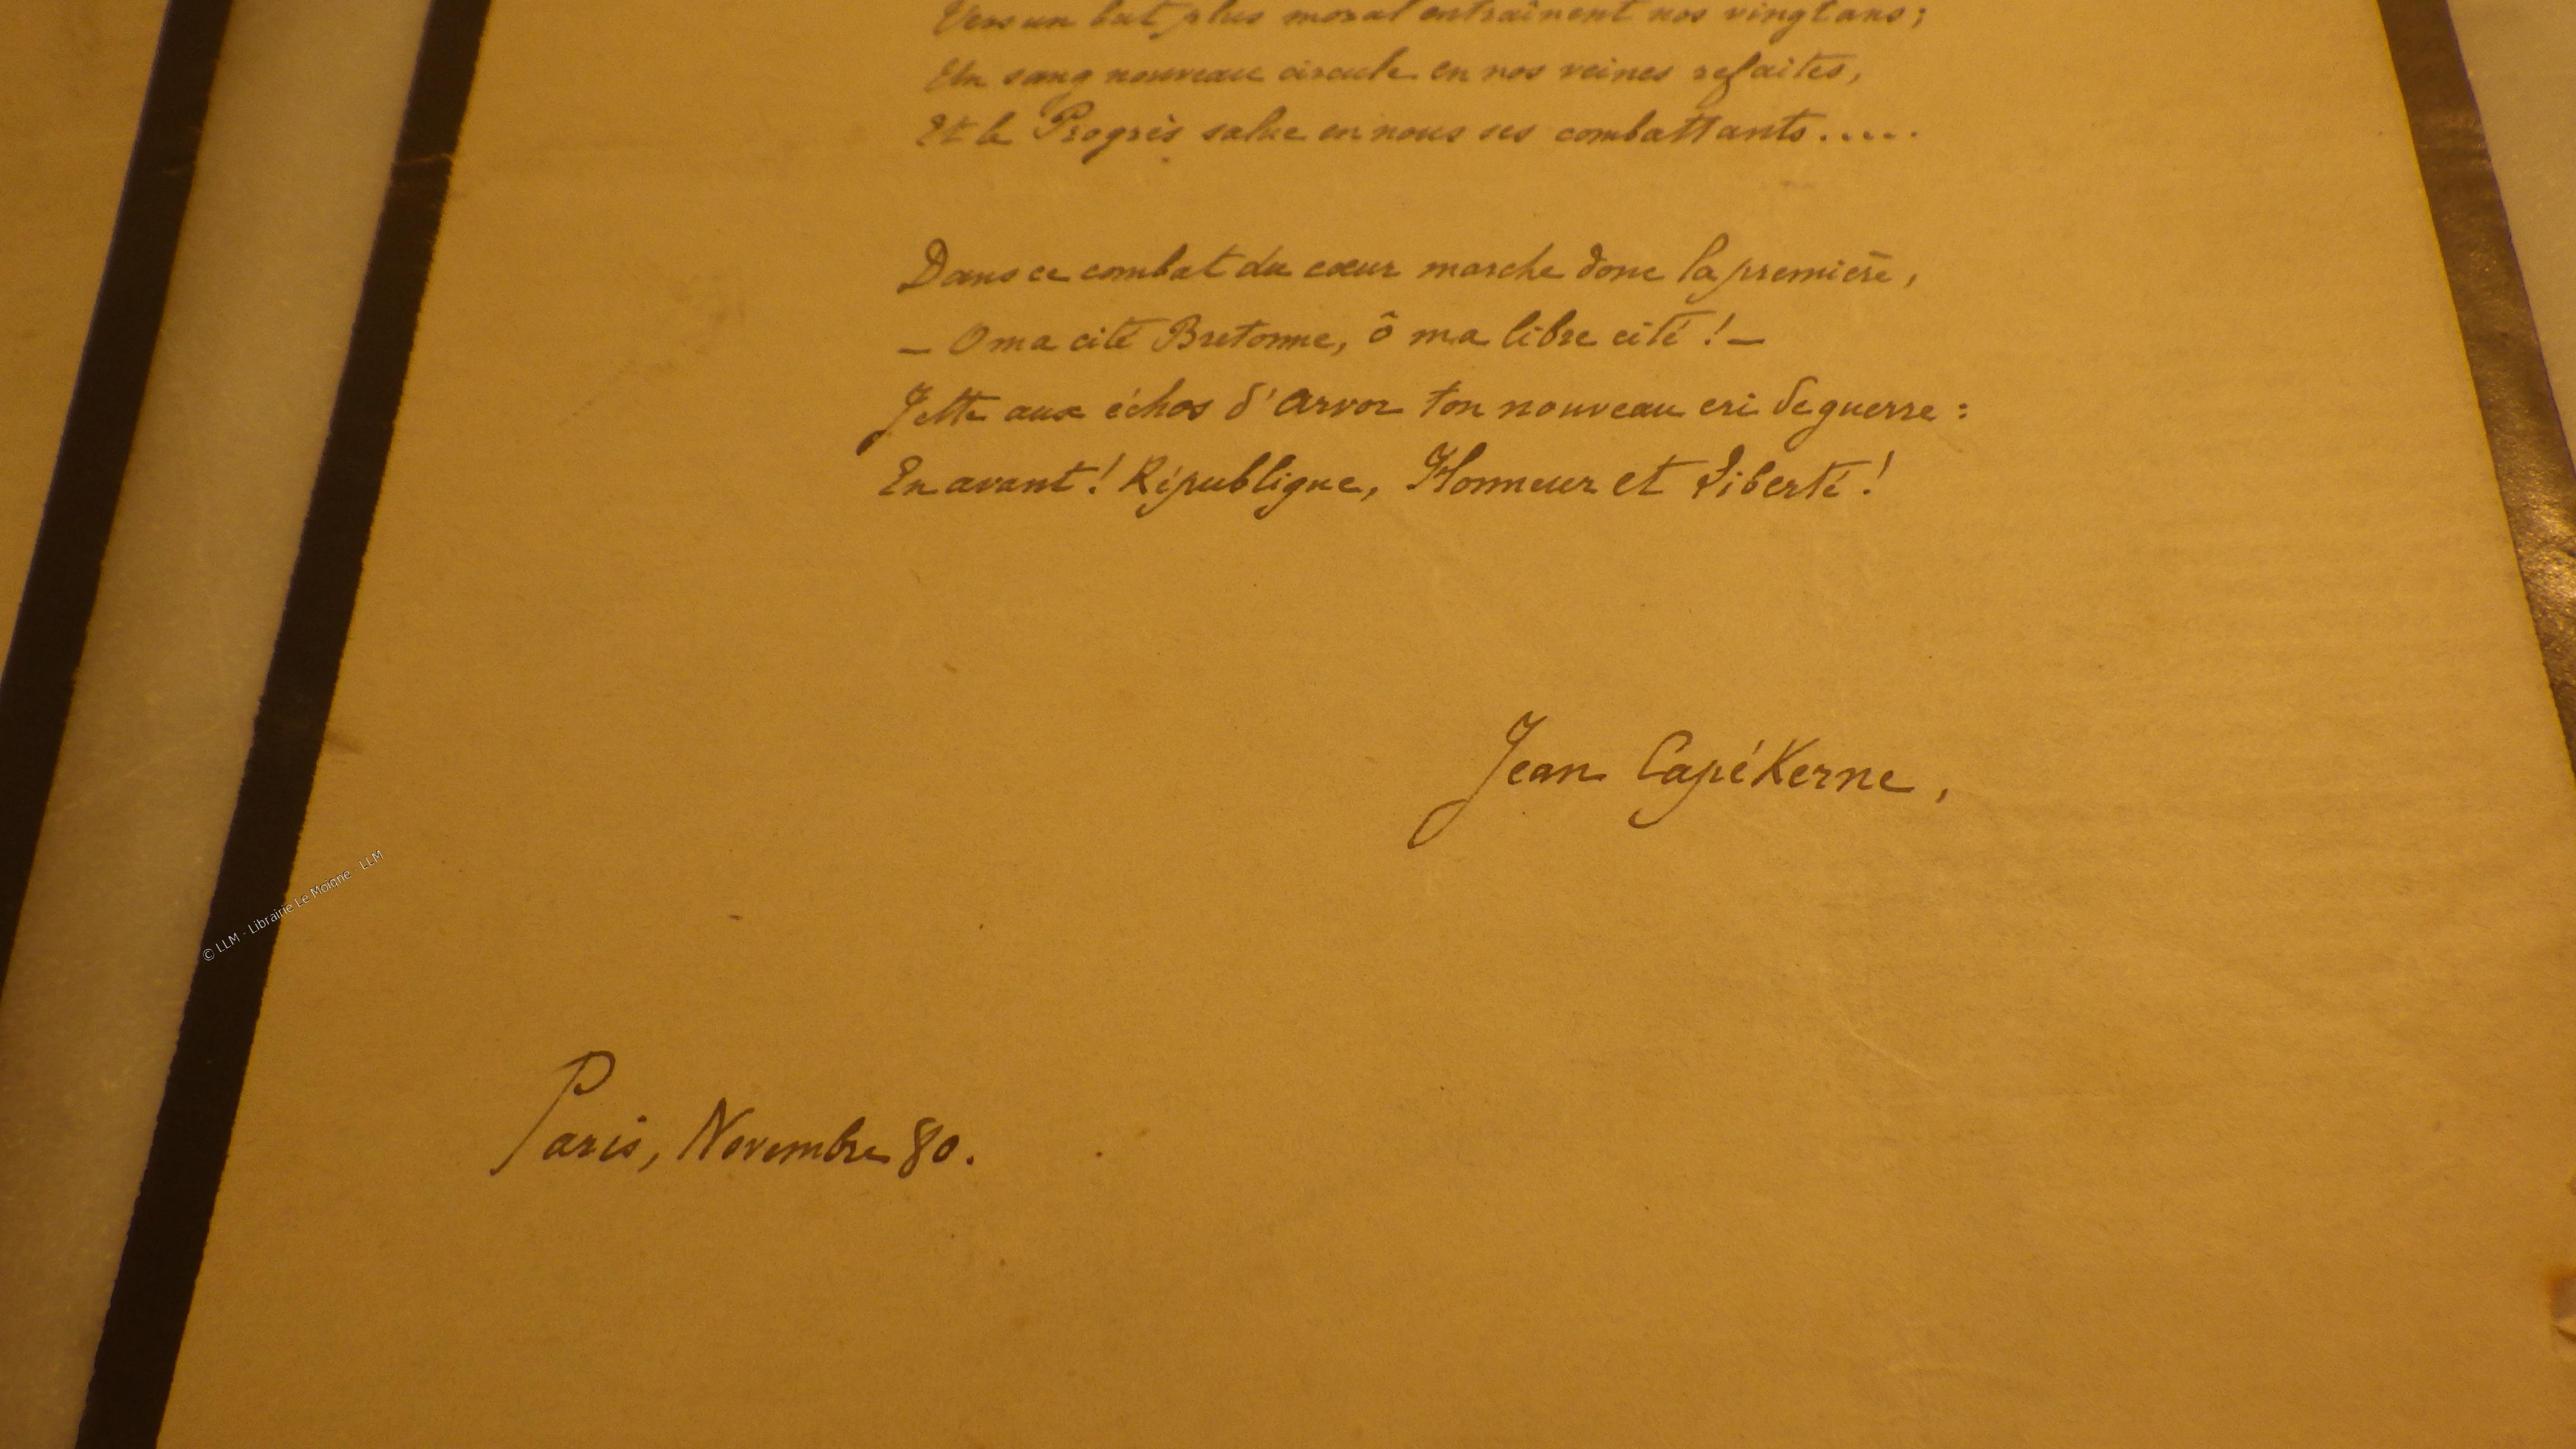 Vers un but plus moral entraînent nos vingt ans ;
Un sang nouveau circule en nos veines refaites,
Et le Progrès salue en nous ses combattants.....
Dans ce combat du cœur marche donc la première,
— O ma cité Bretonne, ô ma libre cité ! —
Jette aux échos d'Arvor ton nouveau cri de guerre :
En avant ! République, Honneur et Liberté !
Jean CapéKerne,
© LLM - Librairie Le Moigne - LLM
Paris, Novembre 80.